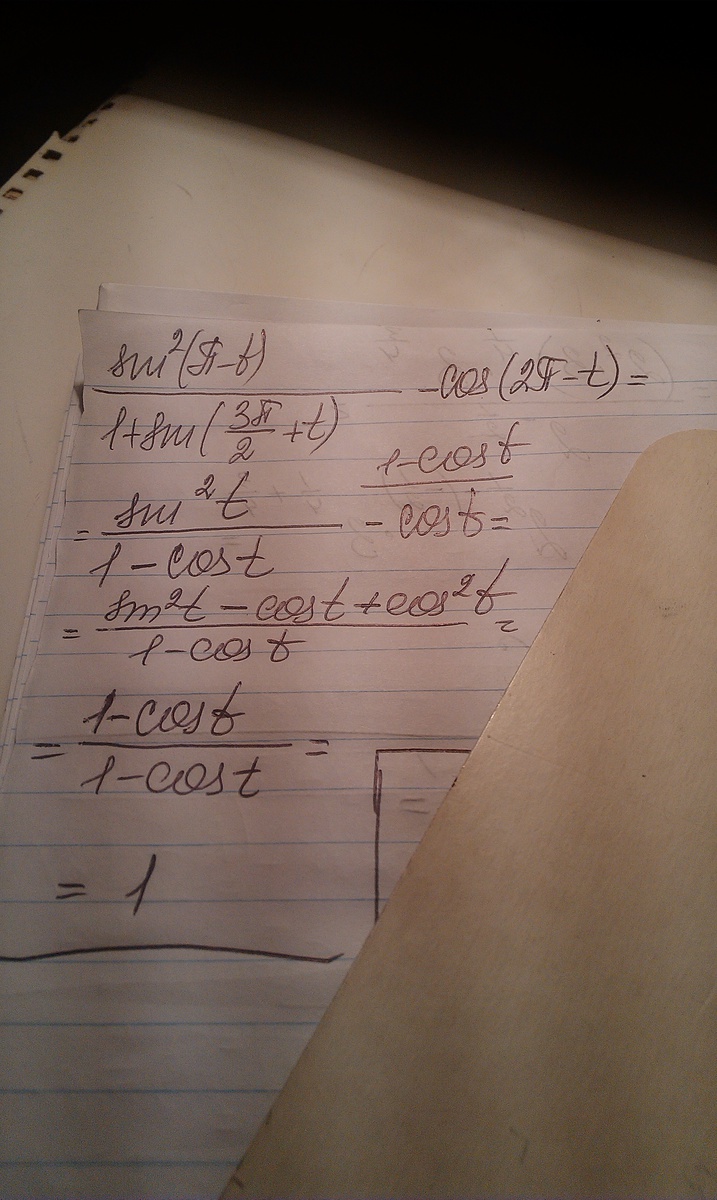 sin²(π-t) / 1+sin(3π/2 +t) - cos(2π-t) =
= sin²t / 1-cost - cost (1-cost =
= sin²t - cost + cos²t / 1-cost =
= 1-cost / 1-cost =
= 1
=